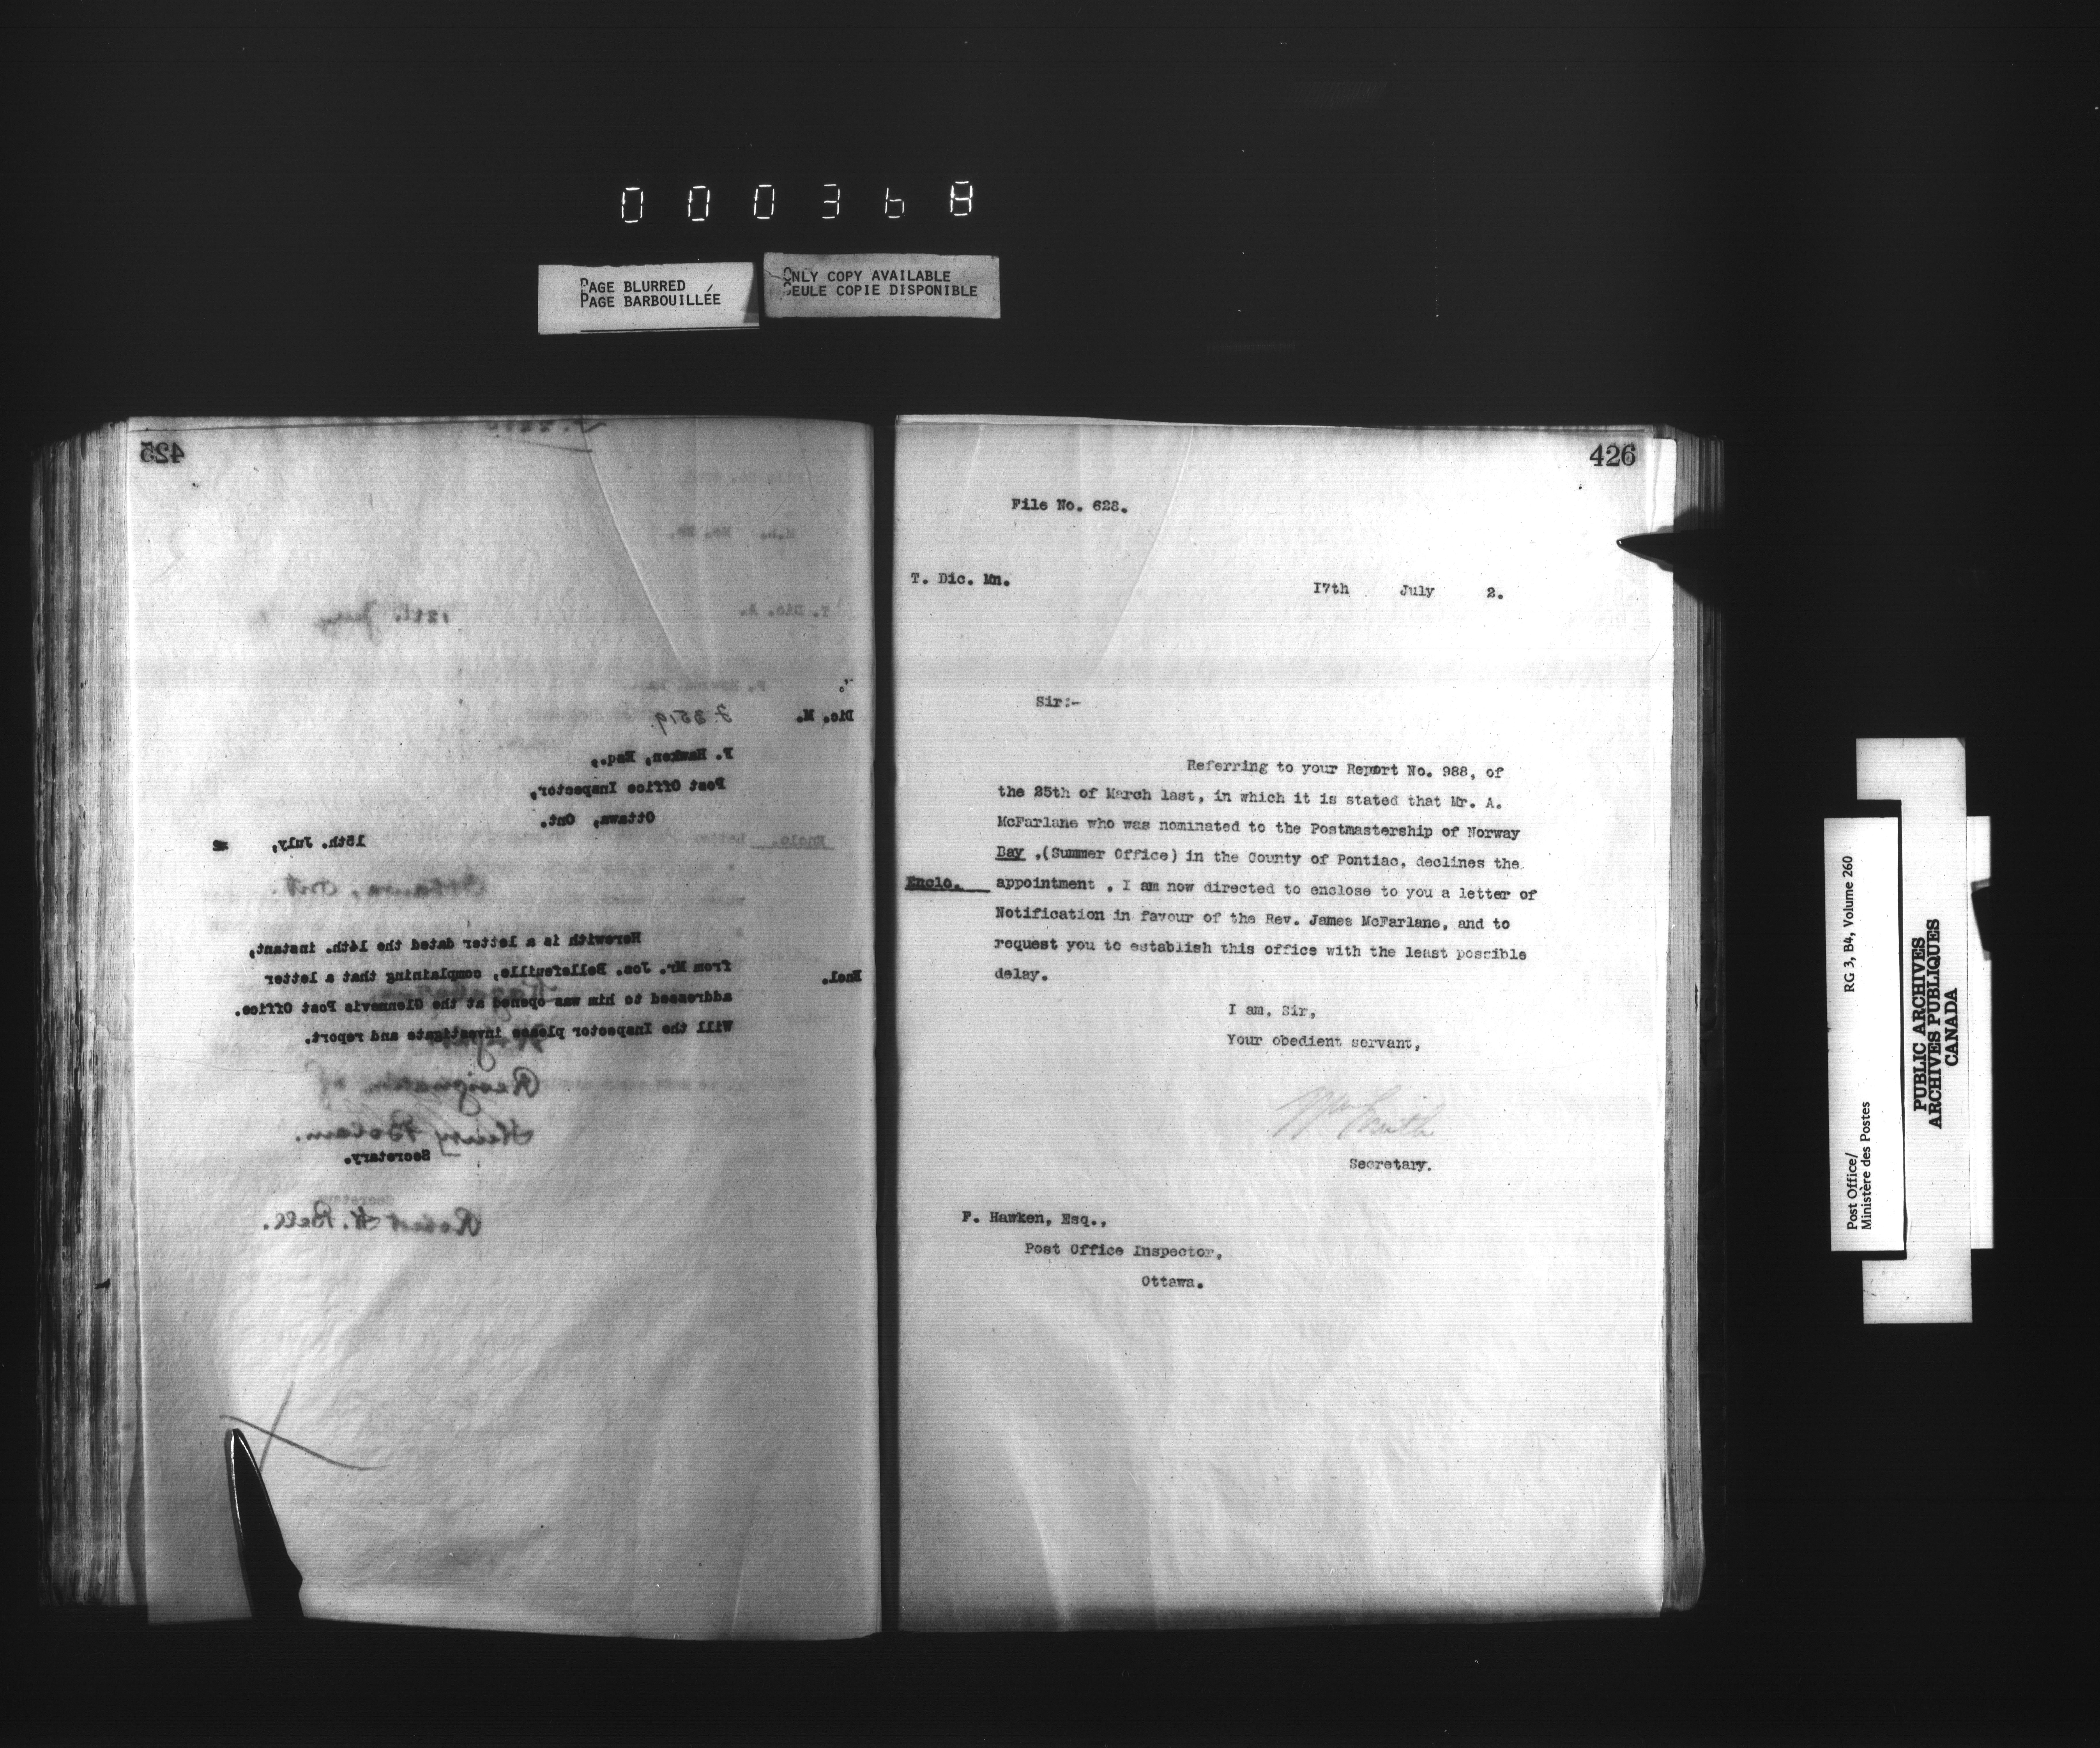 000368
PAGE BLURRED
PAGE BARBOUILLÉE
ONLY COPY AVAILABLE
SEULE COPIE DISPONIBLE
425
12th. July
T. Dic. A.
Dic. M.
F. Hawken, Esq.,
Post Office Inspector,
Ottawa, Ont.
15th. July, 2
Enclo.
Ottawa, Ont.
Herewith is a letter dated the 14th. instant,
Encl. from Mr. Jos. Bellefeuille, complaining that a letter
addressed to him was opened at the Glennevis Post Office.
Will the Inspector please investigate and report.
Resignation of
Henry Bolam.
Secretary.
Robert H. Bell.
426
File No. 628.
T. Dic. Mn.
17th July 2.
Sir:-
Referring to your Report No. 988, of
the 25th of March last, in which it is stated that Mr. A.
McFarlane who was nominated to the Postmastership of Norway
Day ,(Summer Office) in the County of Pontiac, declines the
Enclo. appointment , I am now directed to enclose to you a letter of
Notification in favour of the Rev. James McFarlane, and to
request you to establish this office with the least possible
delay.
I am, Sir,
Your obedient servant,
Wm Smith
Secretary.
F. Hawken, Esq.,
Post Office Inspector,
Ottawa.
Post Office/
Ministère des Postes
RG 3, B4, Volume 260
PUBLIC ARCHIVES
ARCHIVES PUBLIQUES
CANADA